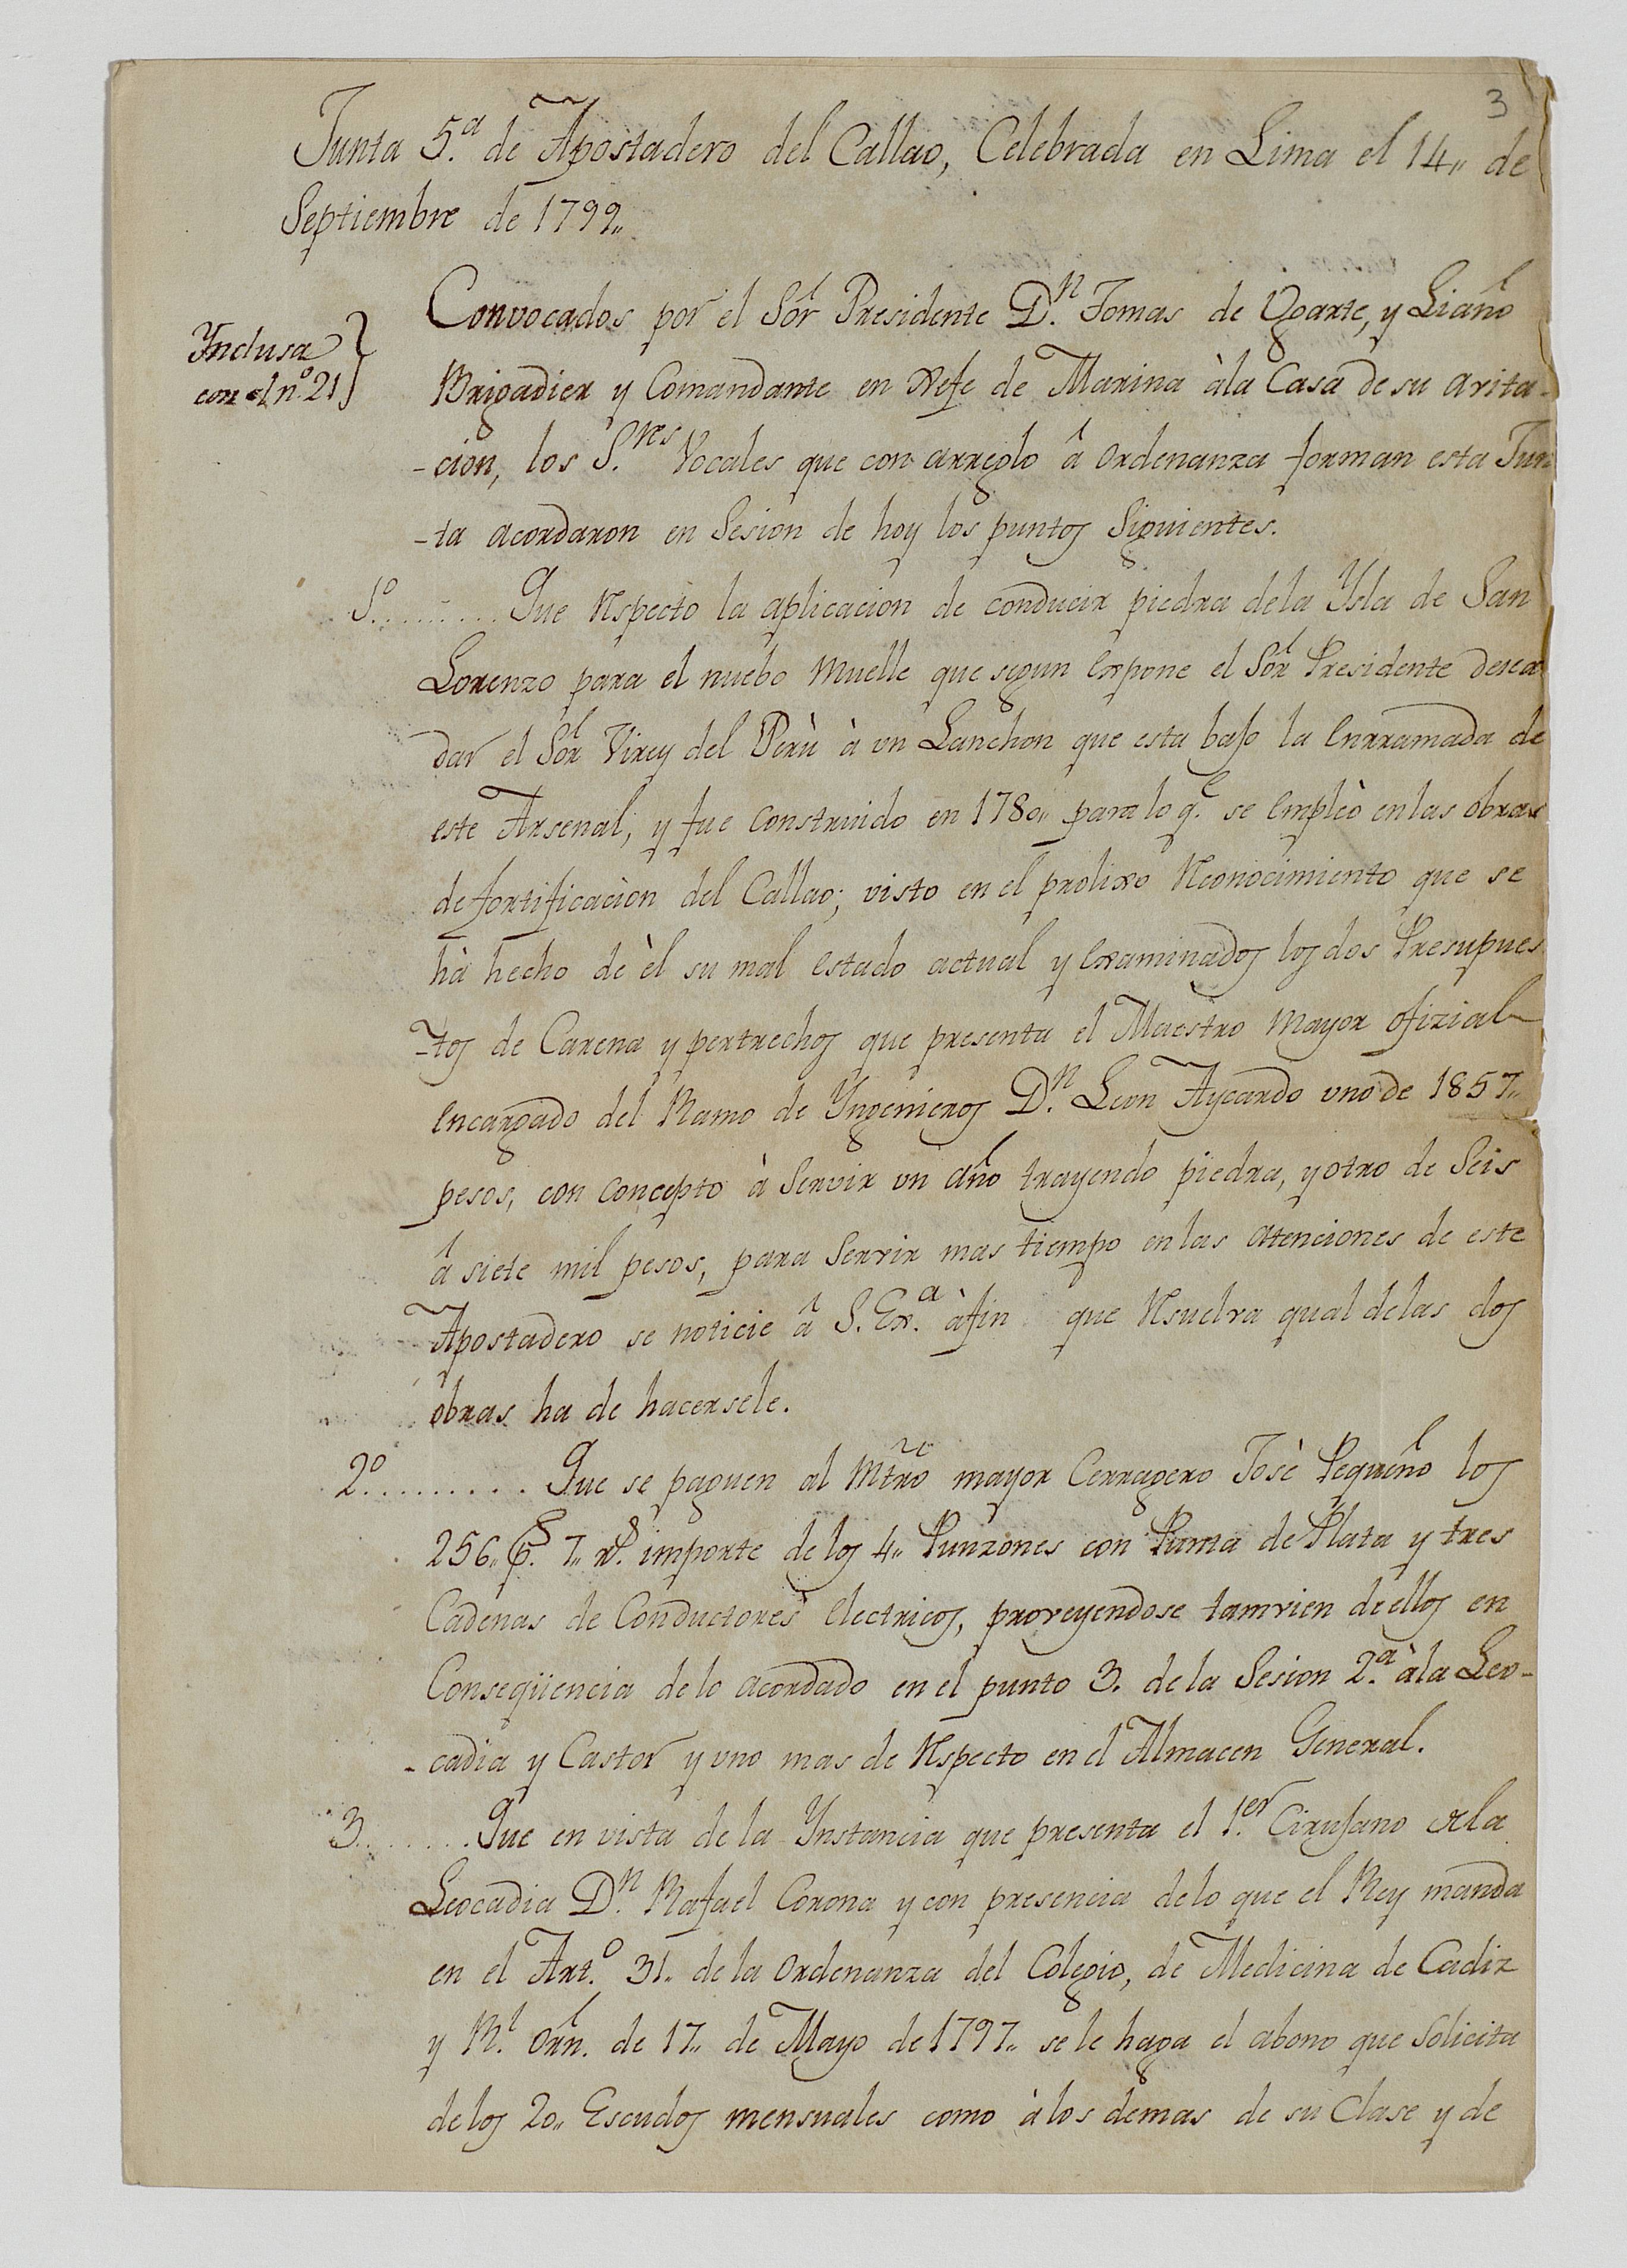 3
Junta 5.ª de Apostadero del Callao, Celebrada en Lima el 14,, de
Septiembre de 1799,,
Ynclusa
con el nº. 21
Convocados por el Sōr Presidente D.n Tomas de Vgarte, y Liaño
Brigadier y Comandante en Xefe de Marina àla Casa de su avita-
-cion, los S.res Vocales que con arreglo â ordenanza forman esta Jun
-ta acordaron en Sesion de hoy los puntos Siguientes.
1º......... Que respecto la aplicacion de conducir piedra dela Ysla de San
Lorenzo para el nuebo Muelle que segun Expone el Sōr Presidente desea
dar el Sōr Virey del Perù à vn Lanchon que esta bajo la Enrramada de
este Arsenal, y fue construido en 1780,, para lo q.e se Empleò en las obras
de fortificaciòn del Callao; visto en el prolixo reconocimiento que se
hà hecho dè èl su mal Estado actual y Examinados los dos Presupues
-tos de Carena y pertrechos que presenta el Maestro Mayor ofizial
Encargado del Ramo de Yngenieros D.n Leon Aycardo vno de 1857,,
pesos, con concepto à Servir vn año trayendo piedra, y otro de Seis
â siete mil pesos, para Servir mas tiempo en las atenciones de este
Apostadero se noticie â S. Ex.a àfin que resuelva qual delas dos
obras ha de hacersele.
2º......... Que se paguen al Mtrō mayor Cerragero Josè Pequeño los
256,, p.s 7,, r.s importe de los 4,, Punzones con Punta de Plata y tres
Cadenas de Conductores Electricos, proveyendose tamvien de ellos en
Conseqüencia de lo acordado en el punto 3. de la Sesion 2.ª àla Leo-
-cadia y Castor y vno mas de respecto en el Almacen General.
3....... Que en vista de la Ynstancia que presenta el 1.er Cirujano dela
Leocadia D.n Rafael Corona y con presencia delo que el Rey manda
en el Art.º 31,, de la ordenanza del Colegio, de Medicina de Cadiz
y R.l Orn. de 17,, de Mayo de 1797,, se le haga el abono que Solicita
delos 20,, Escudos mensuales como àlos demas de su Clase y de